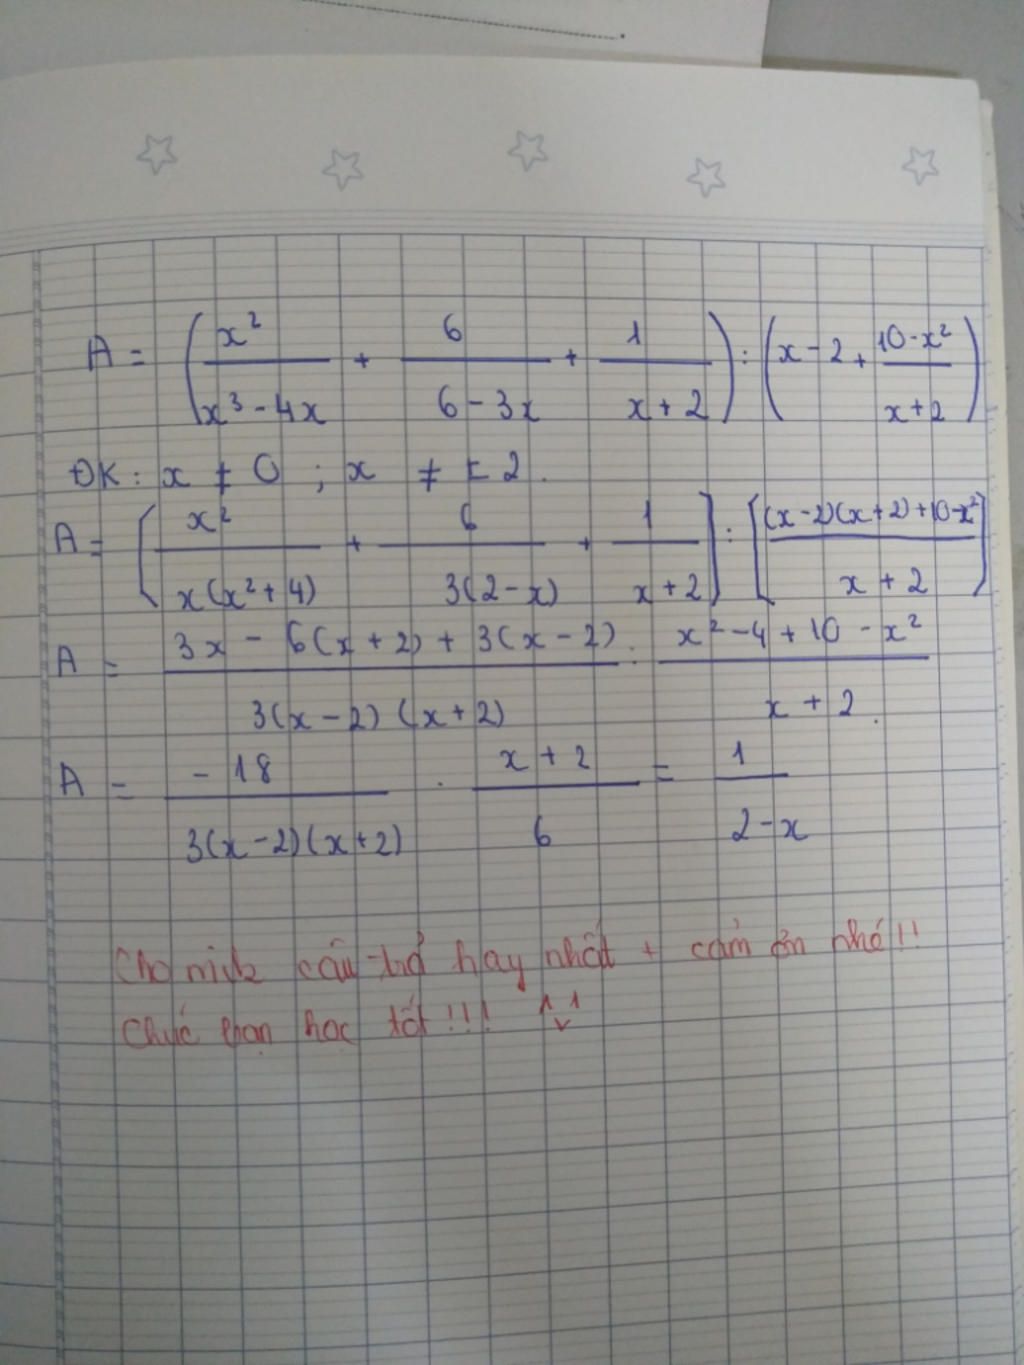 A = ( x² / (x³ - 4x) + 6 / (6 - 3x) + 1 / (x + 2) ) : ( x - 2 + (10 - x²) / (x + 2) )
ĐK : x ≠ 0 ; x ≠ ± 2 .
A = [ x² / x(x² + 4) + 6 / 3(2 - x) + 1 / (x + 2) ] : [ ((x - 2)(x + 2) + 10 - x²) / (x + 2) ]
A = (3x - 6(x + 2) + 3(x - 2)) / 3(x - 2)(x + 2) : (x² - 4 + 10 - x²) / (x + 2) .
A = -18 / 3(x - 2)(x + 2) . (x + 2) / 6 = 1 / (2 - x)
Cho mik câu trả hay nhất + cảm ơn nhé!!
Chúc bạn học tốt!!! ^v^